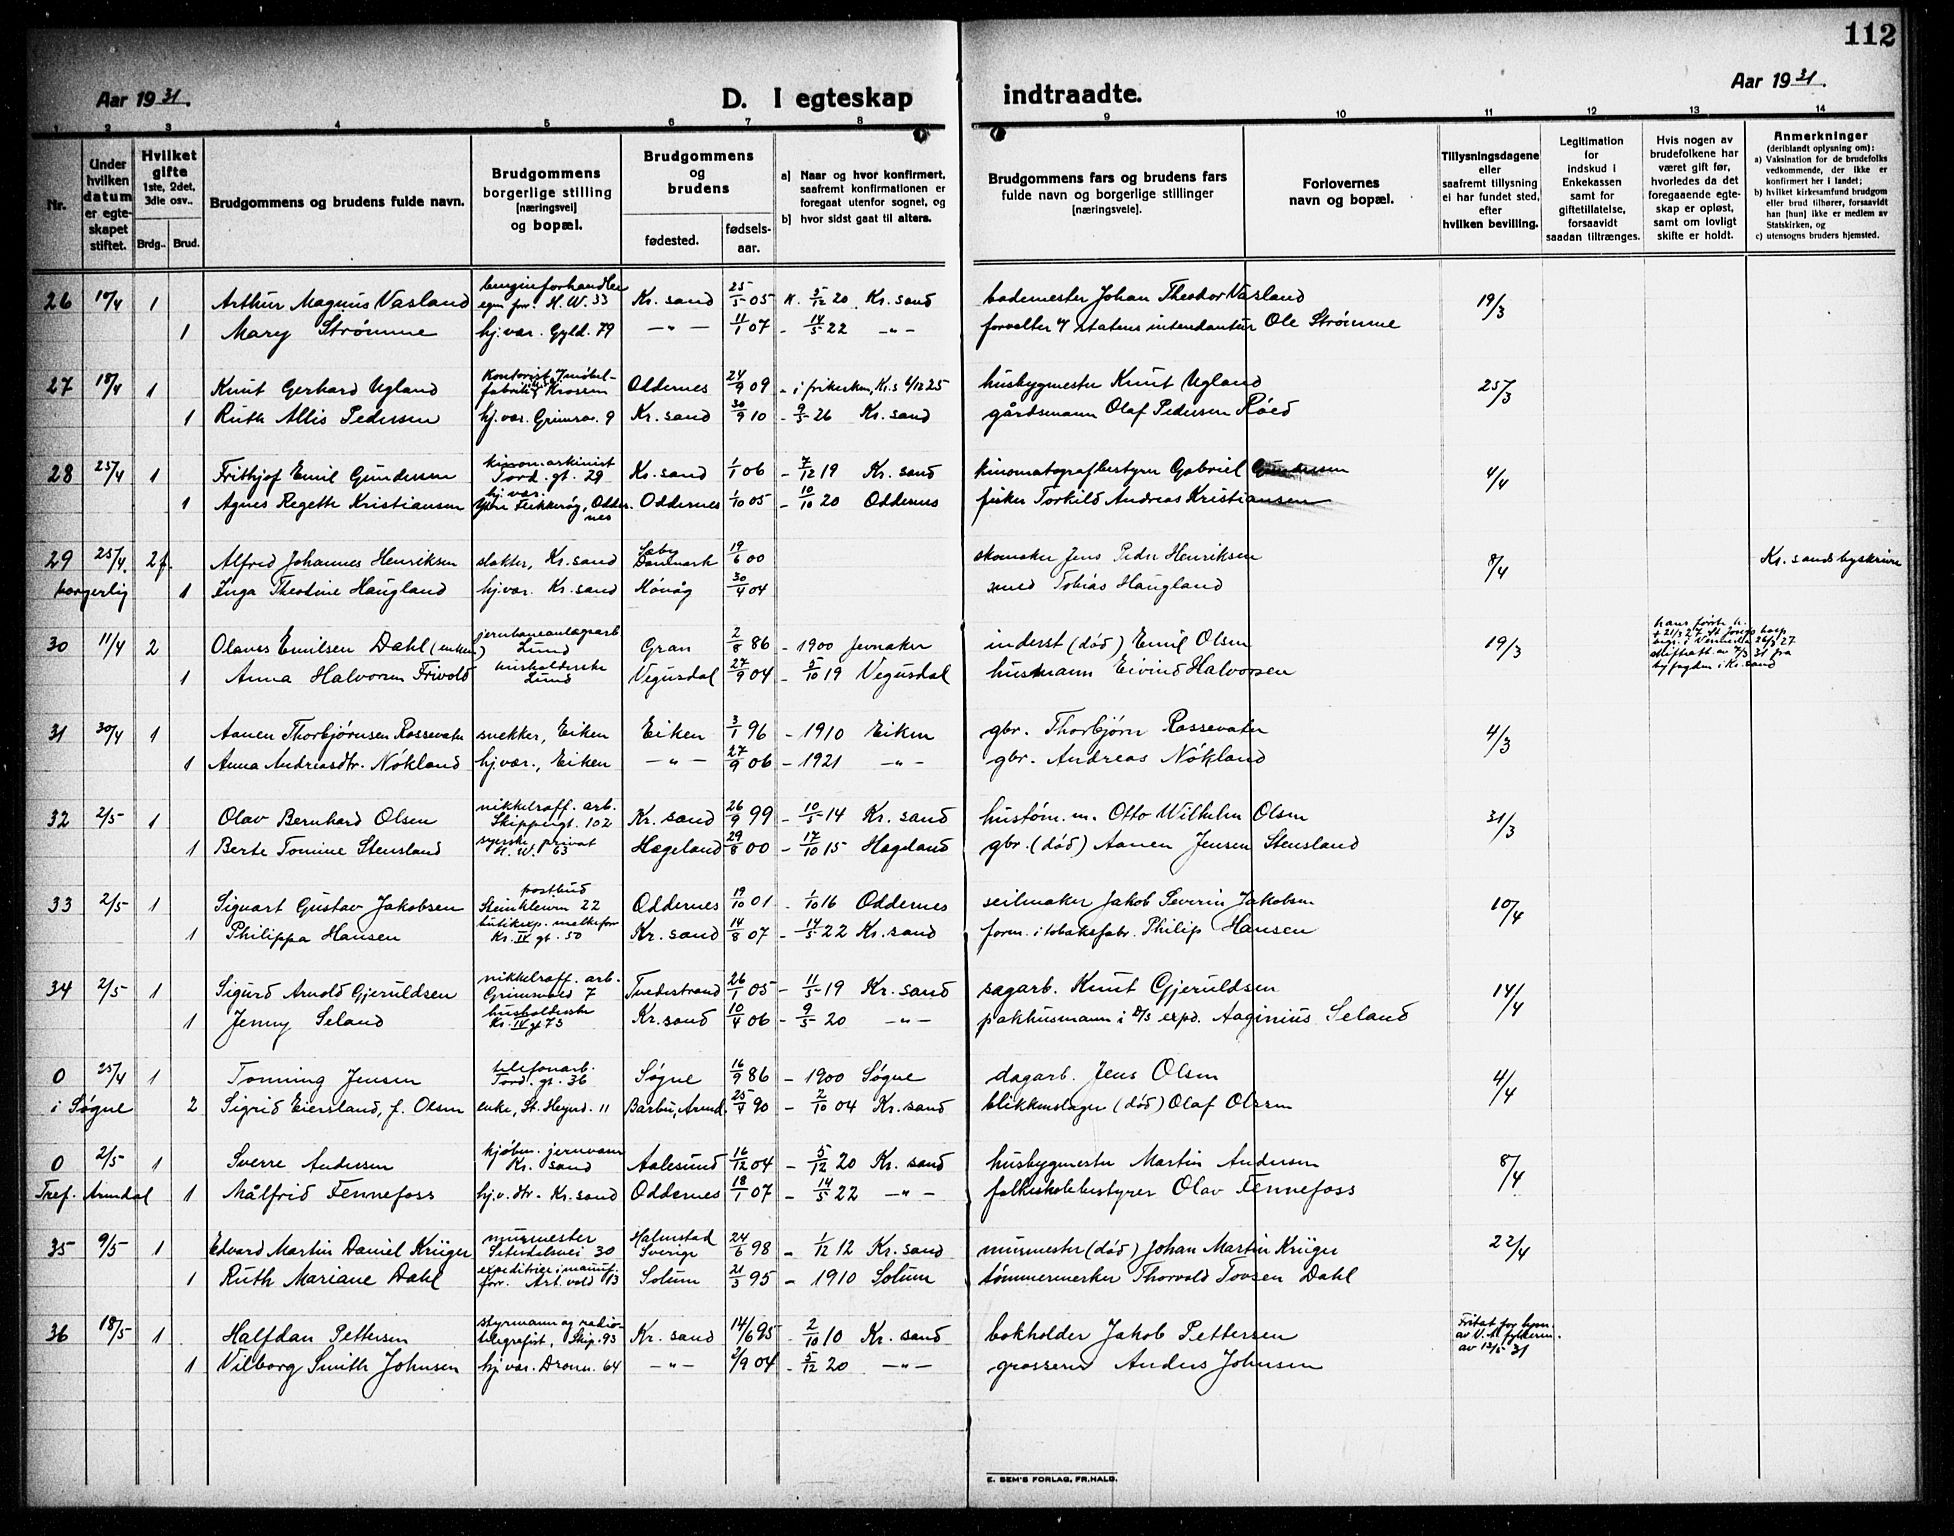 112
Aar 1931.
D. I egteskap indtraadte.
Aar 1931.
1 2 3 4 5 6 7 8 9 10 11 12 13 14
Nr.
Under hvilken datum er egteskapet stiftet.
Hvilket gifte 1ste, 2det, 3die osv..
Brdg.. Brud.
Brudgommens og brudens fulde navn.
Brudgommens borgerlige stilling [næringsvei] og bopæl.
Brudgommens og brudens
fødested.. fødselsaar.
a) Naar og hvor konfirmert, saafremt konfirmationen er foregaat utenfor sognet, og
b) hvor sidst gaat til alters.
Brudgommens fars og brudens fars fulde navn og borgerlige stillinger [næringsveie].
Forlovernes navn og bopæl.
Tillysningsdagene eller saafremt tillysning ei har fundet sted, efter hvilken bevilling.
Legitimation for indskud i Enkekassen samt for giftetillatelse, forsaavidt saadan tiltrænges.
Hvis nogen av brudefolkene har været gift før, hvorledes da det foregaaende egteskap er opløst, samt om lovligt skifte er holdt.
Anmerkninger (deriblandt oplysning om):
a) Vaksination for de brudefolks vedkommende, der ikke er konfirmert her i landet;
b) hvilket kirkesamfund brudgom eller brud tilhører, forsaavidt han [hun] ikke er medlem av Statskirken, og
c) utensogns bruders hjemsted.
26 1 Arthur Magnus Vasland H. W. 33 Kr. sand 25/5 05 K. 5/12 20 Kr. sand bademester Johan Theodor Vasland 19/3
1 Mary Strømme hj. vær. Gyld. 79 —"— 11/1 07 - 14/5 22 -"- forvalter v/ statens intendantur Ole Strømme
27 18/4 1 Knut Gerhard Ugland Oddernes 24/9 09 husbygmester Knut Ugland 25/3
1 Ruth Allis Pedersen hj. vær. 9 Kr. sand 30/9 10 - 9/5 26 Kr. sand gårdsmann Olaf Pedersen Róed
28 25/4 1 Frithjof Emil Gundersen Tord. gt. 29 Kr. sand 1/1 06 - 7/12 19 Kr. sand kinomatografbestyrer Gabriel Gundersen 4/4
1 Agnes Regette Kristiansen hj. vær. Oddernes Oddernes 1/10 05 - 10/10 20 Oddernes fisker Torkild Andreas Kristiansen
29 25/4. 2f. Alfred Johannes Henriksen slakter, Kr. sand Danmark 19/6 00 skomaker Jens Peder Henriksen 8/4 Kr. sands byskriver
borgerlig 1 Inga Theodine Haugland hj. vær. Kr. sand Hóvåg 30/4 04 smed Tobias Haugland
30 11/4 2 Olaves Emilsen Dahl (enkem.) jernbaneanlægsarb Lund Gran 2/8 86 - 1900 Jevnaker inderst (død) Emil Olsen 19/3
1 Anna Halvorsen Frivold husholderske Lund Vegusdal 27/9 04 - 5/10 19 Vegusdal husmann Eivind Halvorsen
31 30/4 1 Aanen Thorbjørnsen Rossevatn snekker, Eiken Eiken 3/1 96 - 1910 Eiken gbr. Thorbjørn Rossevatn 4/3
1 Anna Andreasdtr. Nókland hj. vær., Eiken —"— 27/9 06 - 1921 —"— gbr. Andreas Nókland
32 2/5 1 Olav Bernhard Olsen nikkelraff. arb. Skippergt. 102 Kr. sand 26/9 99 - 10/5 14 Kr. sand hustøm. m. Otto Wilhelm Olsen 31/3
1 Berte Tomine Stensland syerske privat H. W. 63 Hægeland 29/8 00 - 17/10 15 Hægeland gbr. (død) Aanen Jensen Stensland
33 2/5 1 Sigvart Gustav Jakobsen postbud Steinkleiven 22 Oddernes 19/10 01 - 1/10 16 Oddernes seilmaker Jakob Severin Jakobsen 10/4
1 Philippa Hansen Kr. IV gt. 50 Kr. sand 14/8 07 - 14/5 22 Kr. sand form. i tobaksfabr. Philip Hansen
34 2/5 1 Sigurd Arnold Gjeruldsen nikkelraff. arb. Grimsvold 7 Tvedestrand 26/1 05 - 11/5 19 Kr. sand sagarb. Knut Gjeruldsen 14/4
1 Jenny Seland husholderske Kr. IV gt 73 Kr. sand 10/4 06 - 9/5 20 —"— pakhusmann i D/S exp. Aaginius Seland
0 25/4 1 Tonning Jensen telefonarb. Tord. gt. 36 Søgne 16/9 86 - 1900 Søgne dagarb. Jens Olsen 4/4
i Søgne 2 Sigrid Eiersland, f. Olsen enke, 11 Barbu, Arend. 25/4 90 - 2/10 04 Kr. sand blikkenslager (død) Olaf Olsen
0 2/5 1 Sverre Andersen kjøbm. jernvarer Kr. sand Aalesund 16/12 04 - 5/12 20 Kr. sand husbygmester Martin Andersen 8/4
Tref. Arendal 1 Målfrid Fennefoss Kr. sand Oddernes 18/1 07 - 14/5 22 —"— folkeskolebestyrer Olav Fennefoss
35 9/5 1 Edvard Martin Daniel Krüger murmester Setesdalsvei 30 Halmstad Sverige 24/6 98 - 1/12 12 Kr. sand murmester (død) Johan Martin Krüger 22/4
1 Ruth Mariane Dahl Art. vold 13 Solum 21/3 95 - 1910 Solum tømmermerker Thorvald Tovsen Dahl
36 18/5 1 Halfdan Pettersen styrmann og radiotelegrafist, Skip. 93 Kr. sand 14/6 95 - 2/10 10 Kr. sand bokholder Jakob Pettersen
1 Vilborg Smith Johnsen hj. vær. Dronn. 64 —"— 2/9 04 - 5/12 20 —"— grosserer Anders Johnsen
E. SEM'S FORLAG, FR.HALD.